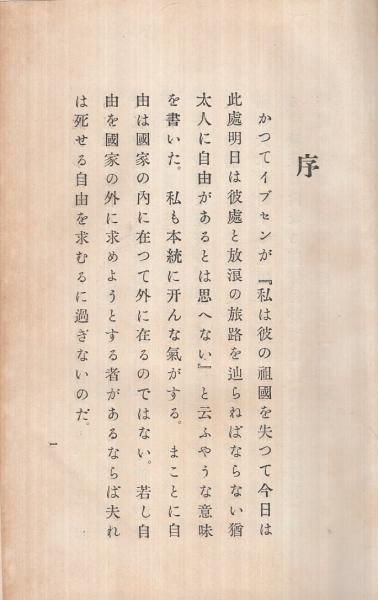 序
かつてイブセンが『私は彼の祖國を失つて今日は
此處明日は彼處と放浪の旅路を辿らねばならない猶
太人に自由があるとは思へない』と云ふやうな意味
を書いた。私も本統に开んな氣がする。まことに自
由は國家の內に在つて外に在るのではない。若し自
由を國家の外に求めようとする者があるならば夫れ
は死せる自由を求むるに過ぎないのだ。
1